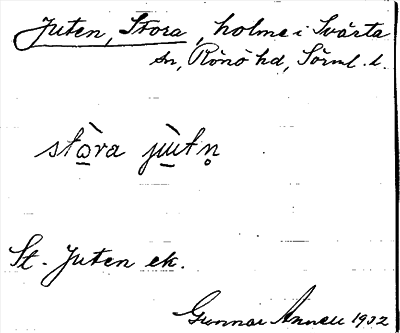 Juten, Stora, holme i Svärta
sn, Rönö hd, Sörml. l.
stò̱ra jɯ̱̀tn̥
St. Juten ek.
Gunnar Annell 1932